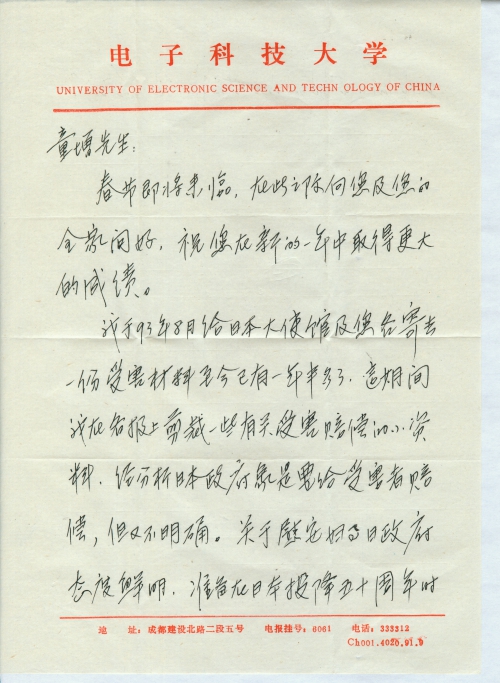 电子科技大学
UNIVERSITY OF ELECTRONIC SCIENCE AND TECHN OLOGY OF CHINA
童增先生:
春节即将来临,在此之际向您及您的
全家问好,祝您在新的一年中取得更大
的成绩。
我于93年8月给日本大使馆及您各寄去
一份受害材料至今已有一年半多了,这期间
我在各报上剪裁一些有关受害赔偿的小资
料,经分析日本政府象是要给受害者赔
偿,但又不明确。关于慰安妇日政府
态度鲜明,准备在日本投降五十周年时
地 址:成都建设北路二段五号 电报挂号:6061 电话:333312
Ch001.4020.91.9